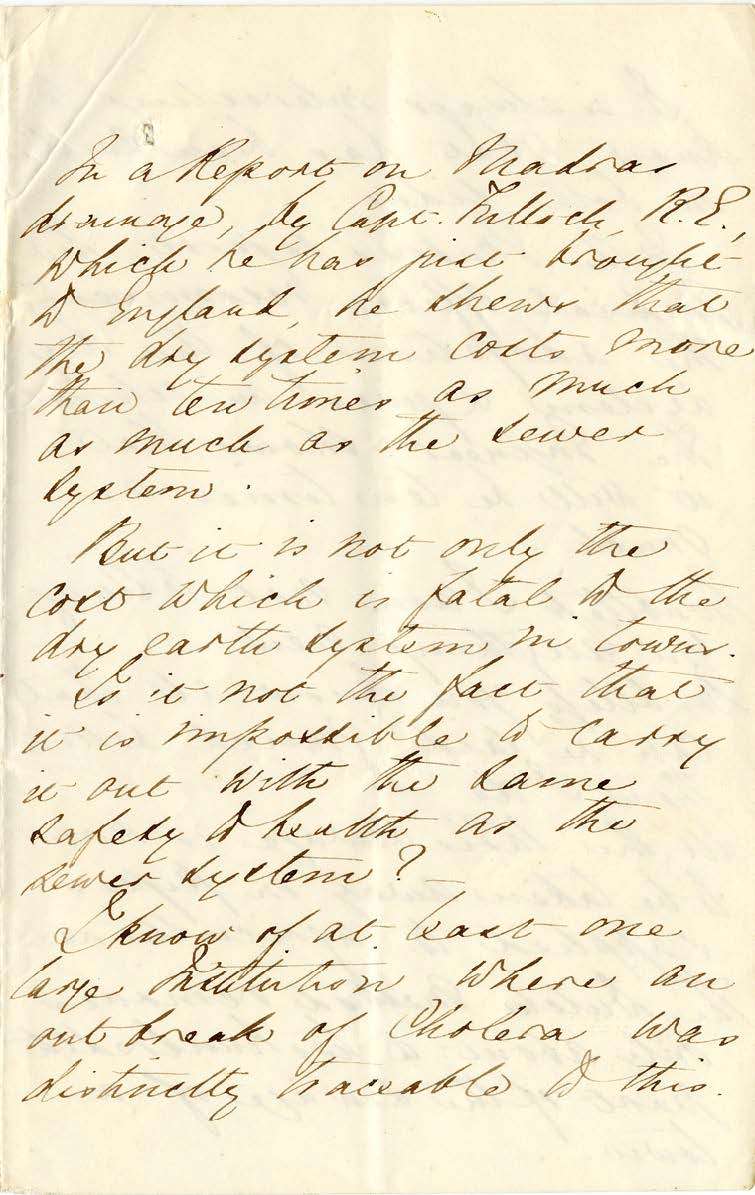 In a Report on Madras
drainage, by Capt. Tulloch, R.E.,
which he has just brought
to England, he shews that
the dry system costs more
than ten times as much
as much as the sewer
system.
But it is not only the
cost which is fatal to the
dry earth system in towns.
Is it not the fact that
it is impossible to carry
it out with the same
safety to health as the
sewer system?
I know of at least one
large Institution where an
outbreak of Cholera was
distinctly traceable to this.